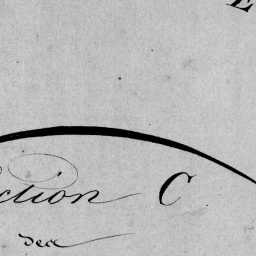 E
ction C
Dec